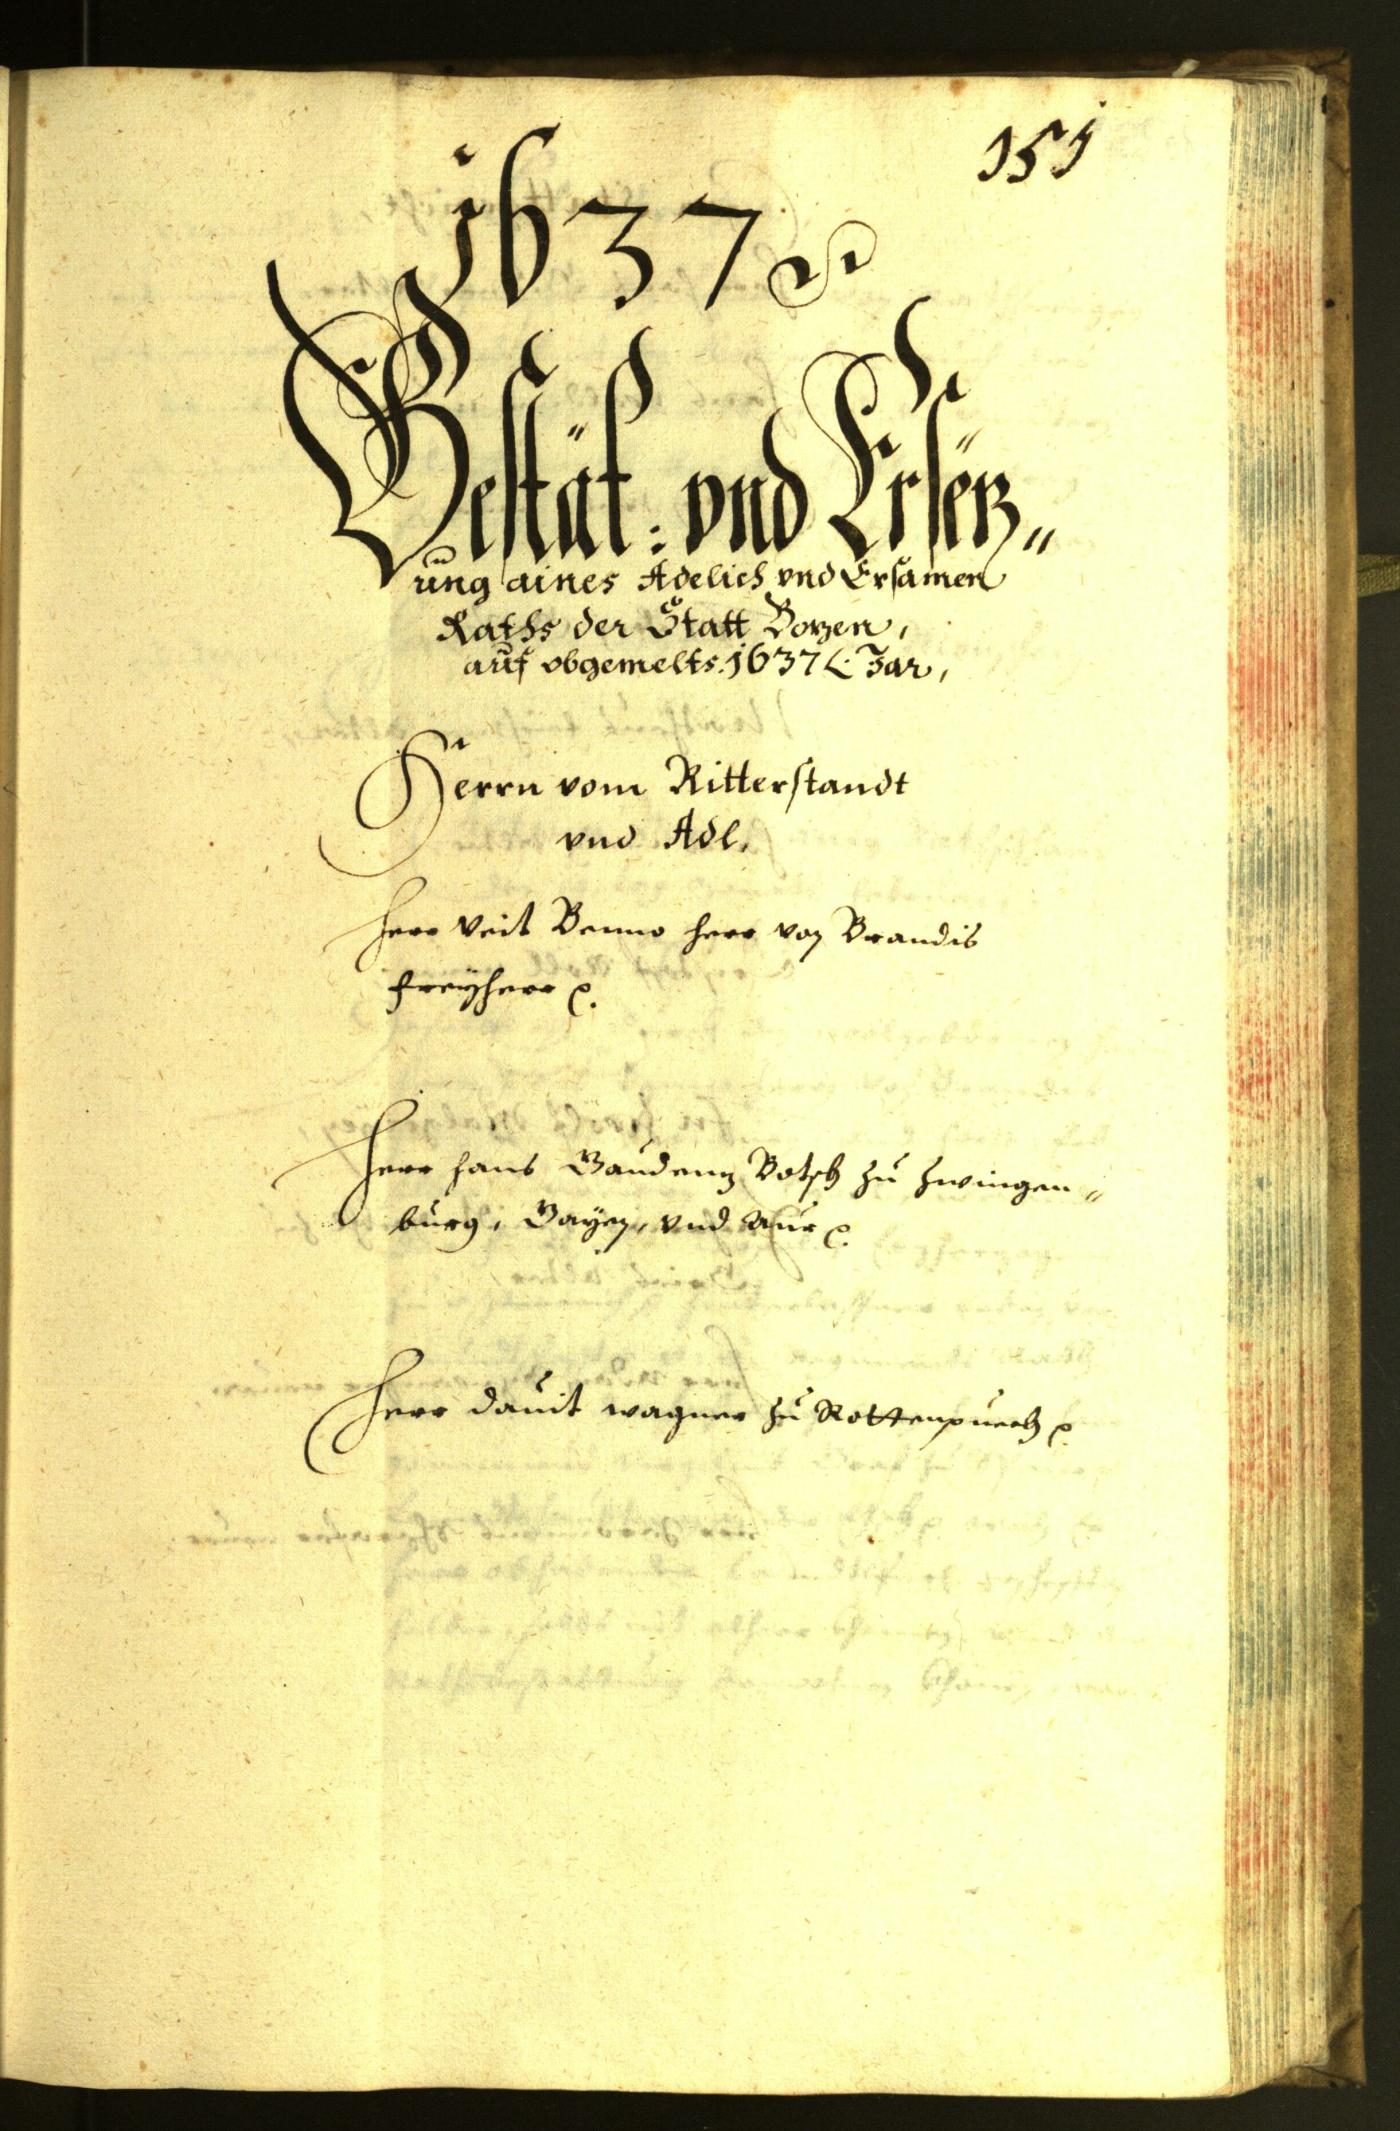 151
1637
Bestät: vnd Ersëtz„
ung aines Adelich vnd Ersamen
Raths der Statt Botzen,
auf obgemelts 1637 L. Jar,
Herrn vom Ritterstandt
vnd Adl.
Herr Veit Benno herr von Brandis
Freyherr
Herr Hans Gaudenz Botsch zu Zwingen„
burg, Gayen, vnd Aur
Herr Dauit Wagner zu Rottenpuech